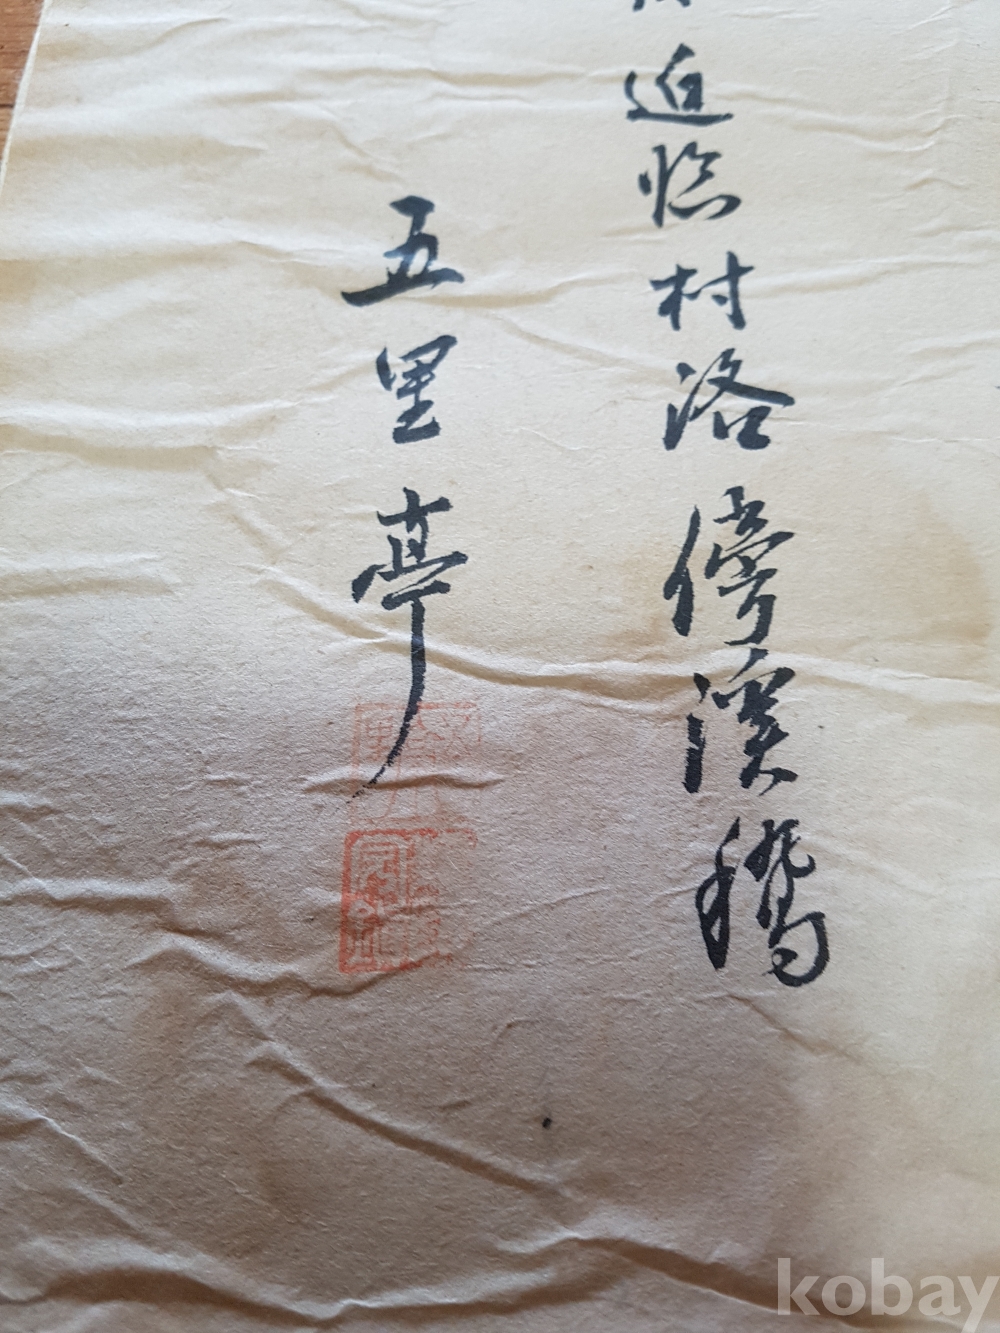 迫臨村洛傍溪橋
五里亭
kobay